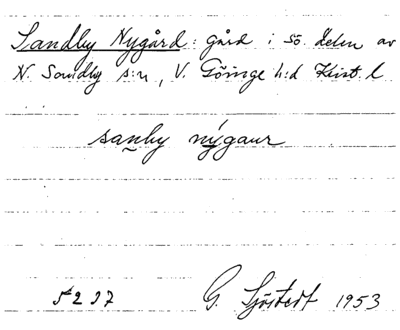 Sandby Nygård: gård i sö. delen av
N. Sandby s:n, V. Göinge h:d Krist. l
sanby nýgaur
5237
G. Sjöstedt 1953